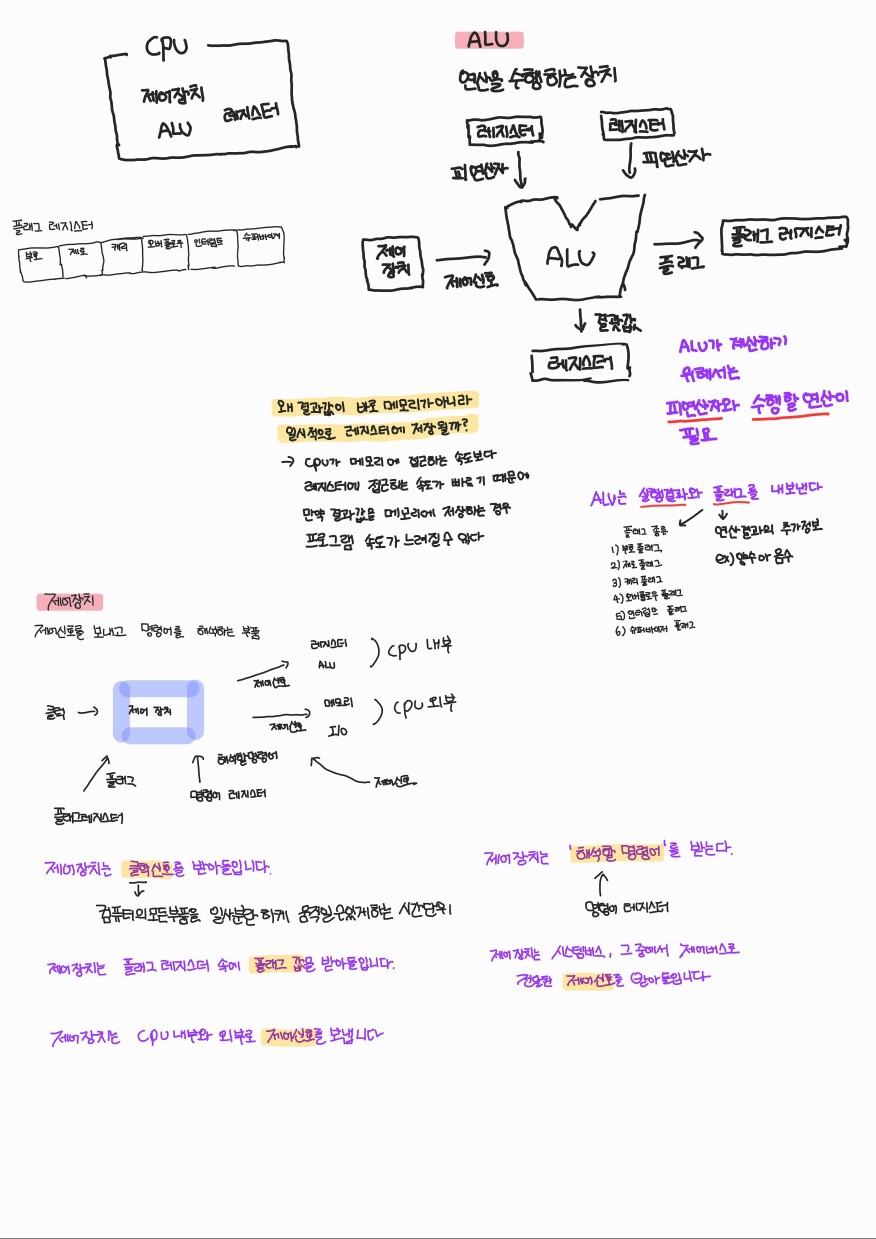 CPU
제어장치
ALU
레지스터
플래그 레지스터
부호
제로
캐리
오버플로우
인터럽트
슈퍼바이저
ALU
연산을 수행하는 장치
레지스터
레지스터
피연산자
피연산자
제어
장치
제어신호
ALU
플래그
플래그 레지스터
결괏값
레지스터
ALU가 계산하기
위해서는
피연산자와 수행할 연산이
필요
왜 결과값이 바로 메모리가 아니라
일시적으로 레지스터에 저장될까?
→ CPU가 메모리에 접근하는 속도보다
레지스터에 접근하는 속도가 빠르기 때문에
만약 결과값을 메모리에 저장하는 경우
프로그램 속도가 느려질 수 있다
ALU는 실행결과와 플래그를 내보낸다
플래그 종류
1) 부호 플래그
2) 제로 플래그
3) 캐리 플래그
4) 오버플로우 플래그
5) 인터럽트 플래그
6) 슈퍼바이저 플래그
연산결과의 추가정보
ex) 양수 or 음수
제어장치
제어신호를 보내고 명령어를 해석하는 부품
클럭
제어 장치
제어신호
레지스터
ALU
CPU 내부
제어신호
메모리
I/O
CPU 외부
플래그
플래그레지스터
해석할 명령어
명령어 레지스터
제어신호
제어장치는 클럭신호를 받아들입니다.
컴퓨터의 모든부품을 일사분란하게 움직일수있게하는 시간단위
제어장치는 플래그 레지스터 속에 플래그 값을 받아들입니다.
제어장치는 CPU 내부와 외부로 제어신호를 보냅니다
제어장치는 '해석할 명령어'를 받는다.
명령어 레지스터
제어장치는 시스템버스, 그 중에서 제어버스로
전달된 제어신호를 받아들입니다